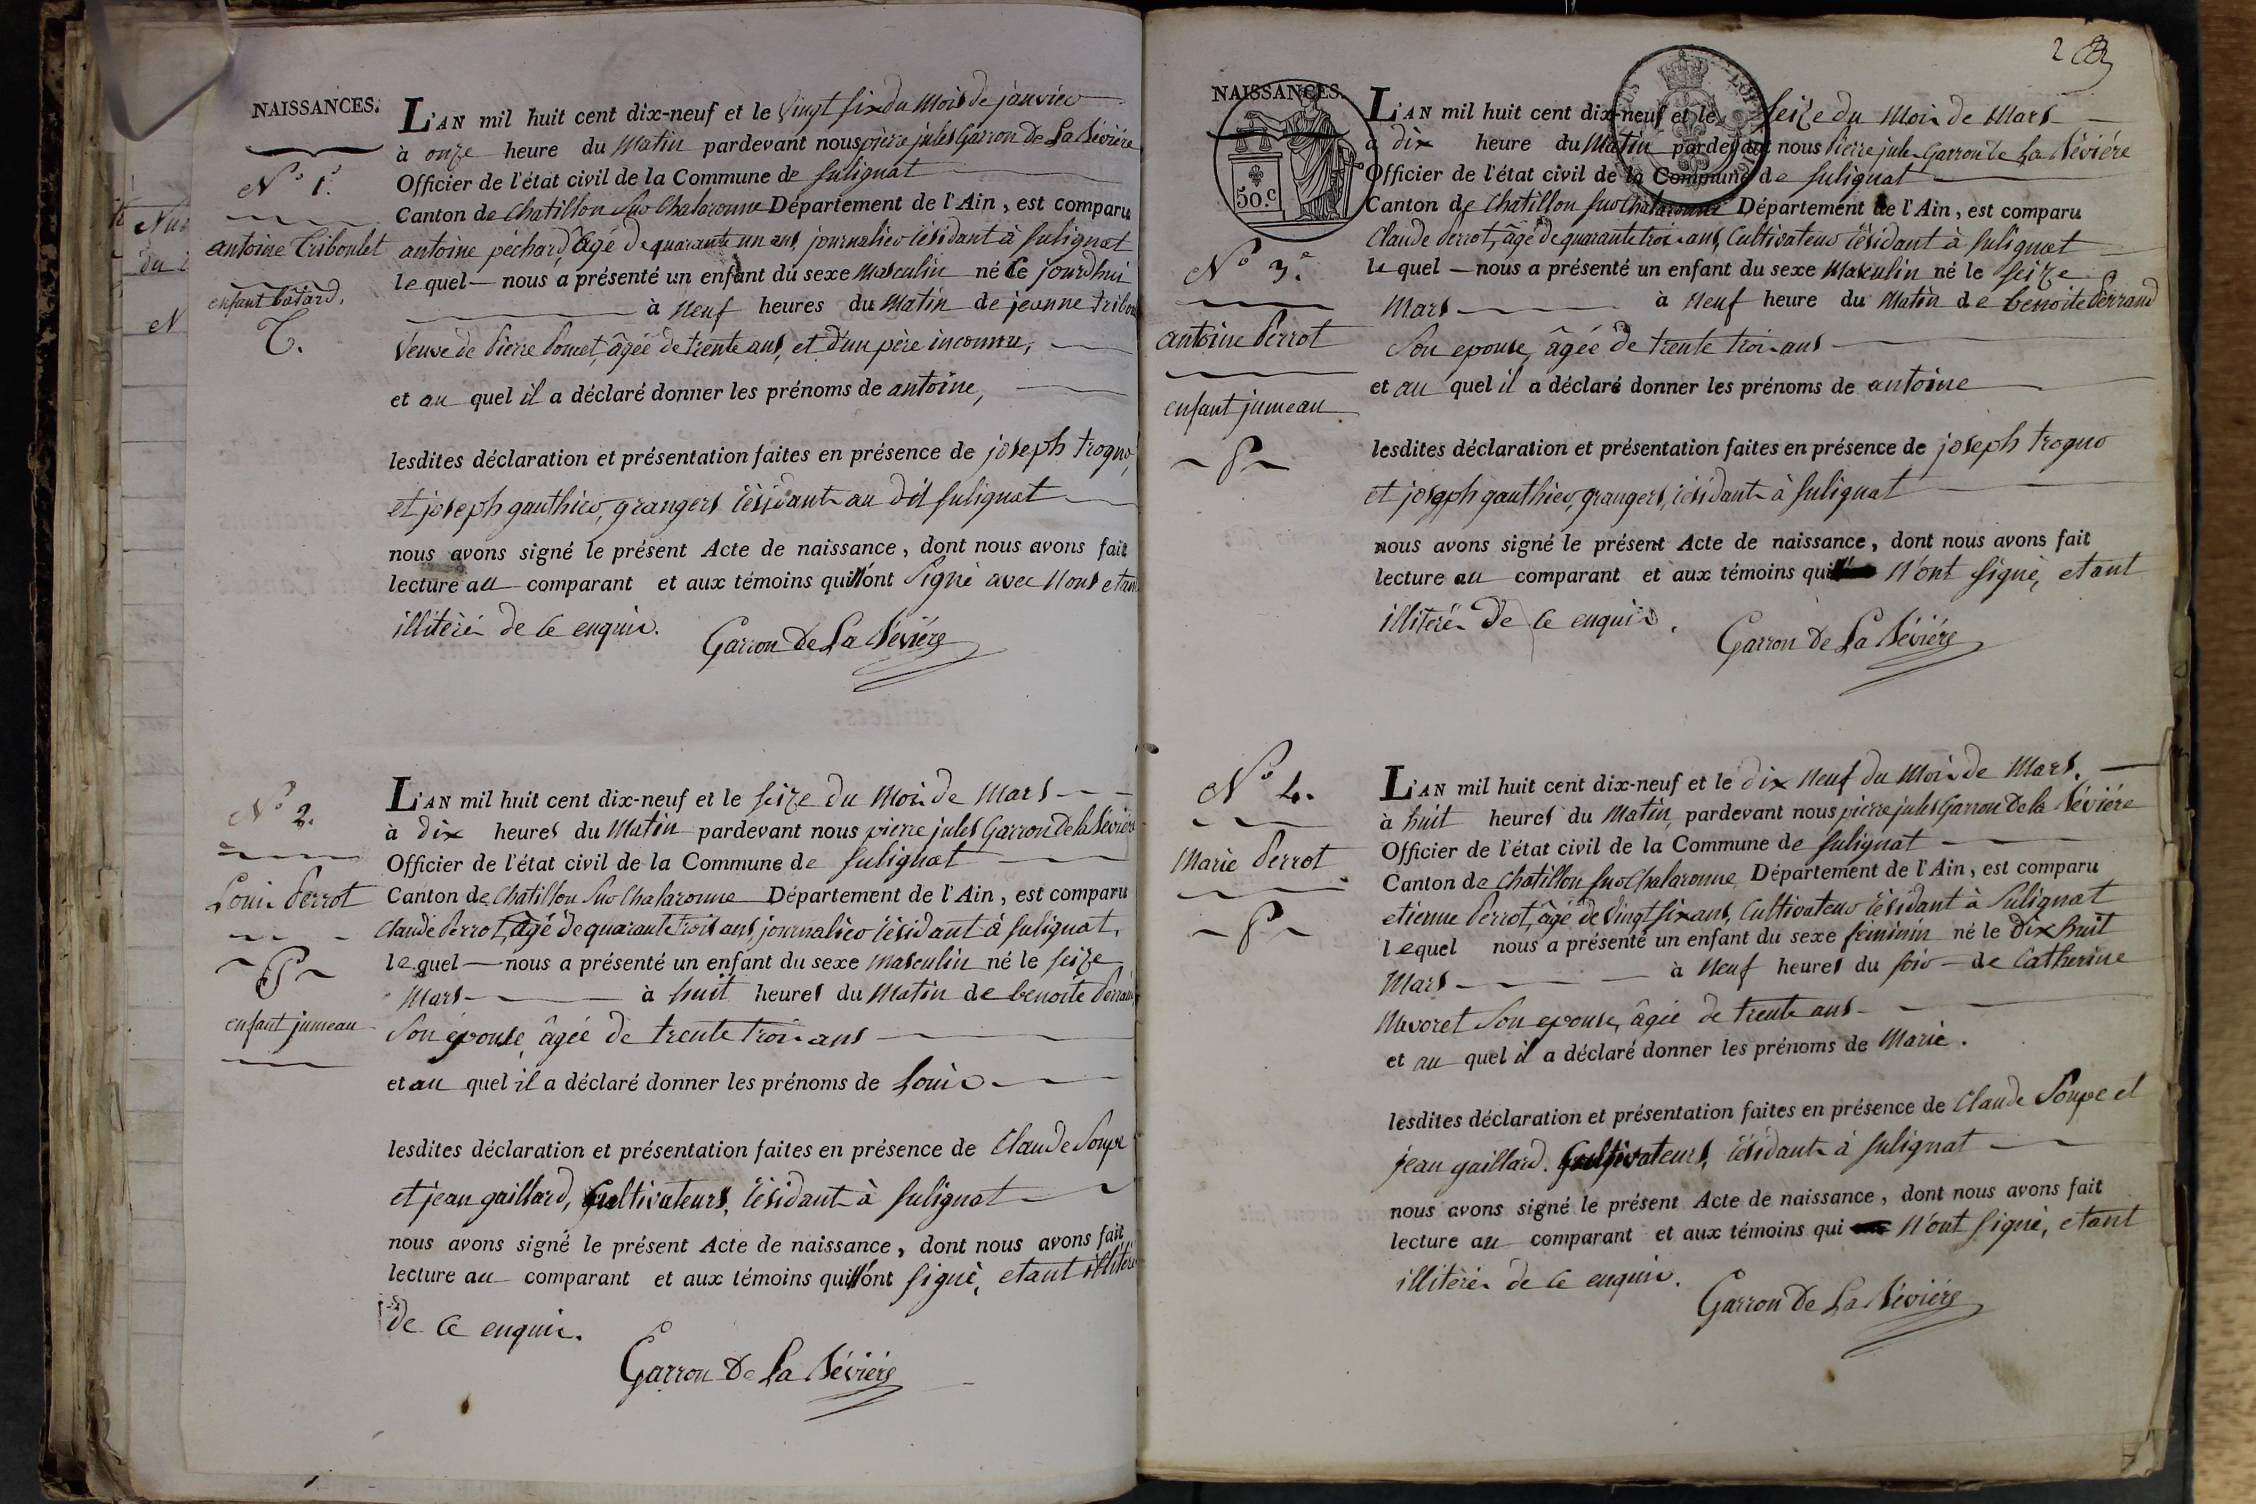 NAISSANCES.
N.° 1.er
antoine Triboulet
enfant bâtard.
T.
L'AN mil huit cent dix-neuf et le vingt six du mois de janvier
à onze heure du Matin pardevant nous pierre jules Garron de La Bévière
Officier de l'état civil de la Commune de Sulignat
Canton de Chatillon Sur Chalaronne Département de l'Ain, est comparu
antoine péchard, âgé de quarante un ans, journalier résidant à Sulignat
lequel nous a présenté un enfant du sexe Masculin né Ce jourdhui
à Neuf heures du Matin de jeanne tribou
Veuve de Pierre Pomet, âgée de trente ans, et d'un père inconnu,
et au quel il a déclaré donner les prénoms de antoine,
lesdites déclaration et présentation faites en présence de joseph trogno,
et joseph gauthier, grangers résidants au dit Sulignat
nous avons signé le présent Acte de naissance, dont nous avons fait
lecture au comparant et aux témoins qui n'ont Signé avec Nous etant
illitèrés de Ce enquis.
Garron De La Bévière
N.° 2.
Louis Perrot
P
enfant jumeau
L'AN mil huit cent dix-neuf et le seize du Mois de Mars
à dix heures du Matin pardevant nous pierre jules Garron de la Bévière
Officier de l'état civil de la Commune de Sulignat
Canton de Chatillon Sur Chalaronne Département de l'Ain, est comparu
Claude Perrot, âgé de quarante trois ans, journalier résidant à Sulignat,
lequel nous a présenté un enfant du sexe masculin né le seize
Mars à huit heures du Matin de benoite Perrand
Son épouse, âgée de trente trois ans
et au quel il a déclaré donner les prénoms de Louis
lesdites déclaration et présentation faites en présence de Claude Soupe
et jean gaillard, Cultivateurs, résidants à Sulignat
nous avons signé le présent Acte de naissance, dont nous avons fait
lecture au comparant et aux témoins qui n'ont signé, etant illitérés
de Ce enquis.
Garron De La Bévière
2
NAISSANCES.
50.c
N.° 3.e
antoine Perrot
enfant jumeau
P
L'AN mil huit cent dix-neuf et le seize du Mois de Mars
à dix heure du Matin pardevant nous Pierre jules Garron de La Bévière
Officier de l'état civil de la Commune de Sulignat
Canton de Chatillon Sur Chalaronne Département de l'Ain, est comparu
Claude Perrot, âgé de quarante trois ans, Cultivateur résidant à Sulignat
lequel nous a présenté un enfant du sexe Masculin né le seize
Mars à Neuf heure du Matin de benoite Perrand
Son epouse, âgée de trente trois ans
et au quel il a déclaré donner les prénoms de antoine
lesdites déclaration et présentation faites en présence de joseph trogno
et joseph gauthier, grangers, résidants à Sulignat
nous avons signé le présent Acte de naissance, dont nous avons fait
lecture au comparant et aux témoins qui N'ont signé, etant
illitérés De Ce enquis.
Garron De La Bévière
N.° 4.
Marie Perrot
P
L'AN mil huit cent dix-neuf et le dix Neuf du Mois de Mars.
à huit heures du Matin, pardevant nous pierre jules Garron De la Bévière
Officier de l'état civil de la Commune de Sulignat
Canton de Chatillon Sur Chalaronne Département de l'Ain, est comparu
etienne Perrot, âgé de Vingt six ans, Cultivateur résidant à Sulignat
lequel nous a présenté un enfant du sexe féminin né le Dix huit
Mars à Neuf heures du soir de Catherine
Mivoret Son epouse, âgée de trente ans
et au quel il a déclaré donner les prénoms de Marie.
lesdites déclaration et présentation faites en présence de Claude Soupe et
jean gaillard. Cultivateurs, résidants à Sulignat
nous avons signé le présent Acte de naissance, dont nous avons fait
lecture au comparant et aux témoins qui N'ont signé, etant
illitèrés de Ce enquis.
Garron De La Bévière